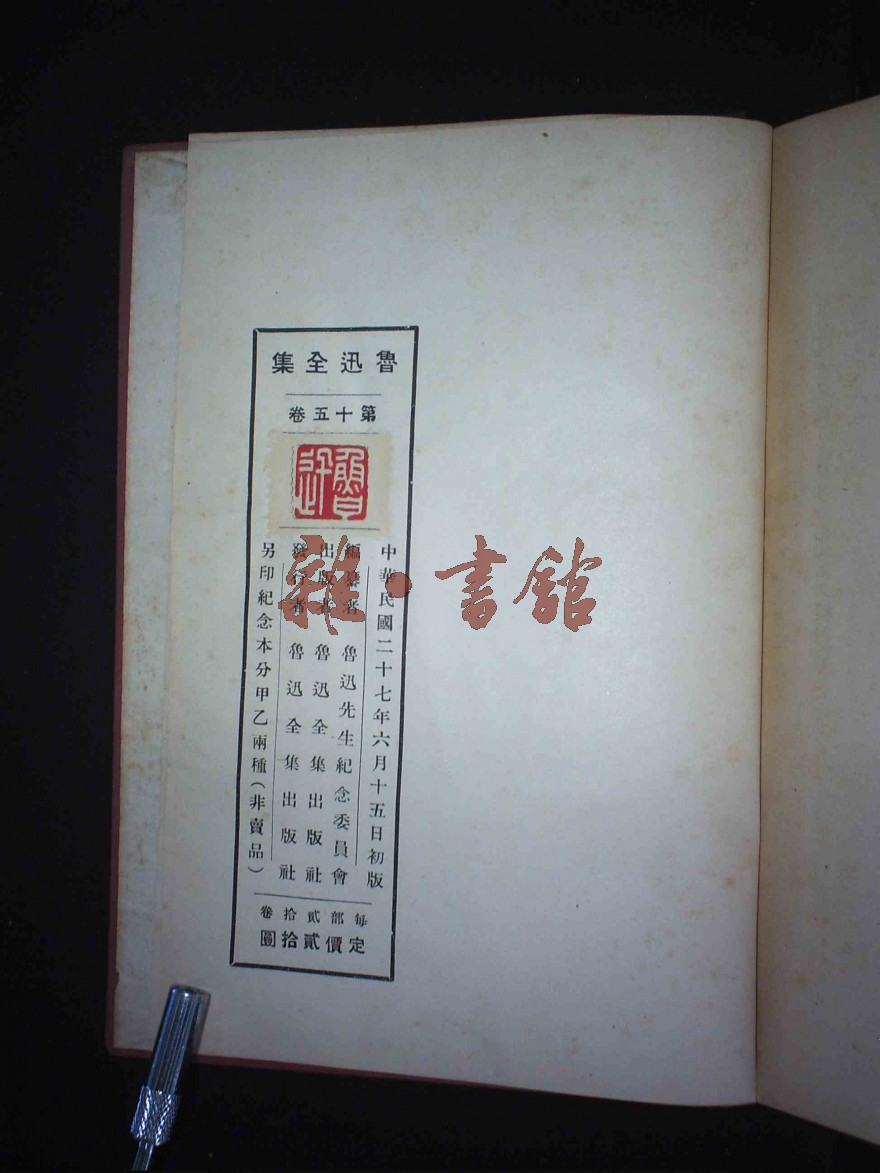 魯迅全集
第十五卷
魯迅
中華民國二十七年六月十五日初版
編纂者 魯迅先生紀念委員會
出版者 魯迅全集出版社
發行者 魯迅全集出版社
另印紀念本分甲乙兩種（非賣品）
每部貳拾卷
定價貳拾圓
雜·書舘